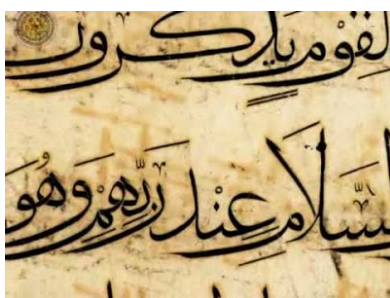 لقوم يذكرون
السلام عند ربهم وهو